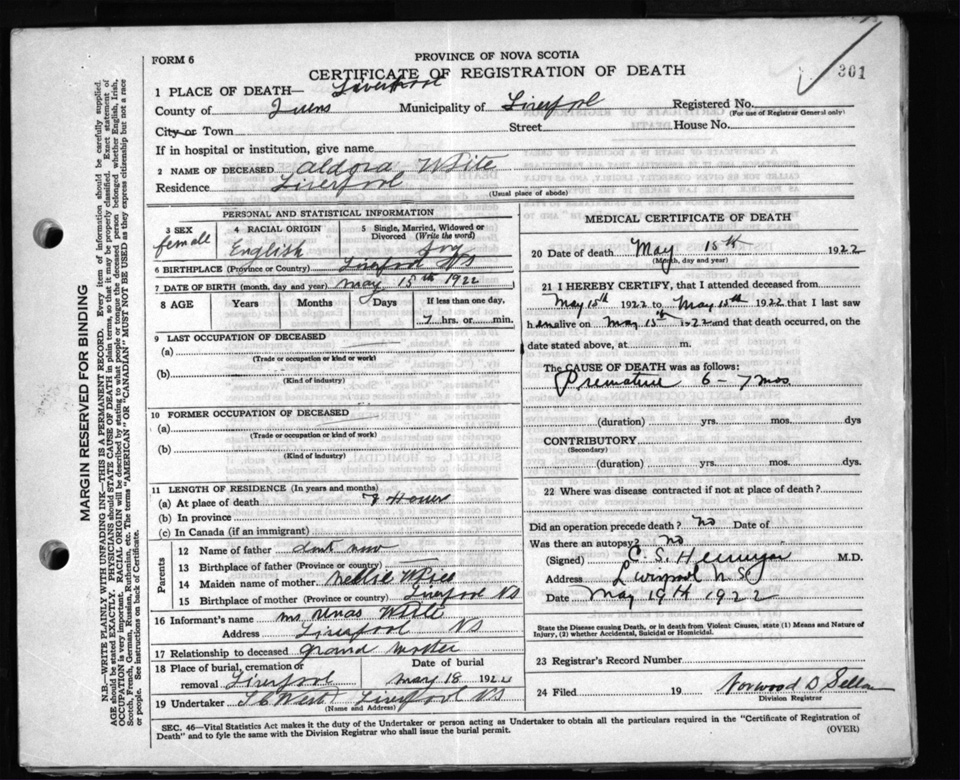 FORM 6
PROVINCE OF NOVA SCOTIA
CERTIFICATE OF REGISTRATION OF DEATH
301
1 PLACE OF DEATH— Liverpool
County of Queens Municipality of Liverpool Registered No.
(For use of Registrar General only)
City or Town Street House No.
If in hospital or institution, give name
2 NAME OF DECEASED Aldora White
Residence Liverpool
(Usual place of abode)
PERSONAL AND STATISTICAL INFORMATION
3 SEX 4 RACIAL ORIGIN 5 Single, Married, Widowed or Divorced (Write the word)
female English
6 BIRTHPLACE (Province or Country) Liverpool NS
7 DATE OF BIRTH (month, day and year) May 15th 1922
8 AGE Years Months Days If less than one day,
7 hrs. or min.
9 LAST OCCUPATION OF DECEASED
(a)
(Trade or occupation or kind of work)
(b)
(Kind of industry)
10 FORMER OCCUPATION OF DECEASED
(a)
(Trade or occupation or kind of work)
(b)
(Kind of industry)
11 LENGTH OF RESIDENCE (In years and months)
(a) At place of death 7 Hours
(b) In province
(c) In Canada (if an immigrant)
Parents
12 Name of father dont now
13 Birthplace of father (Province or country)
14 Maiden name of mother Nellie White
15 Birthplace of mother (Province or country) Liverpool NS
16 Informant's name Mrs White
Address Liverpool NS
17 Relationship to deceased grand mother
18 Place of burial, cremation or removal Liverpool
Date of burial May 18 1922
19 Undertaker West Liverpool NS
(Name and Address)
MEDICAL CERTIFICATE OF DEATH
20 Date of death May 15th 1922
(Month, day and year)
21 I HEREBY CERTIFY, that I attended deceased from
May 15th 1922 to May 15th 1922 that I last saw
h er alive on May 15th 1922 and that death occurred, on the
date stated above, at m.
The CAUSE OF DEATH was as follows:
Premature 6 – 7 mos
(duration) yrs. mos. dys.
CONTRIBUTORY
(Secondary)
(duration) yrs. mos. dys.
22 Where was disease contracted if not at place of death?
Did an operation precede death? no Date of
Was there an autopsy? no
(Signed) C. S. M.D.
Address Liverpool N.S.
Date May 19th 1922
State the Disease causing Death, or in death from Violent Causes, state (1) Means and Nature of
Injury, (2) whether Accidental, Suicidal or Homicidal.
23 Registrar's Record Number
24 Filed 19 Norwood D
Division Registrar
SEC. 46—Vital Statistics Act makes it the duty of the Undertaker or person acting as Undertaker to obtain all the particulars required in the "Certificate of Registration of
Death" and to fyle the same with the Division Registrar who shall issue the burial permit.
(OVER)
MARGIN RESERVED FOR BINDING
N.B.—WRITE PLAINLY WITH UNFADING INK—THIS IS A PERMANENT RECORD. Every item of information should be carefully supplied.
AGE should be stated EXACTLY. PHYSICIANS should STATE CAUSE OF DEATH in plain terms, so that it may be properly classified. Exact statement of
OCCUPATION is very important. RACIAL ORIGIN will be described by stating to what people or tongue the deceased person belonged whether English, Irish,
Scotch, French, German, Russian, Ruthenian, etc. The terms "AMERICAN" OR "CANADIAN" MUST NOT BE USED as they express citizenship but not a race
or people. See instructions on back of Certificate.